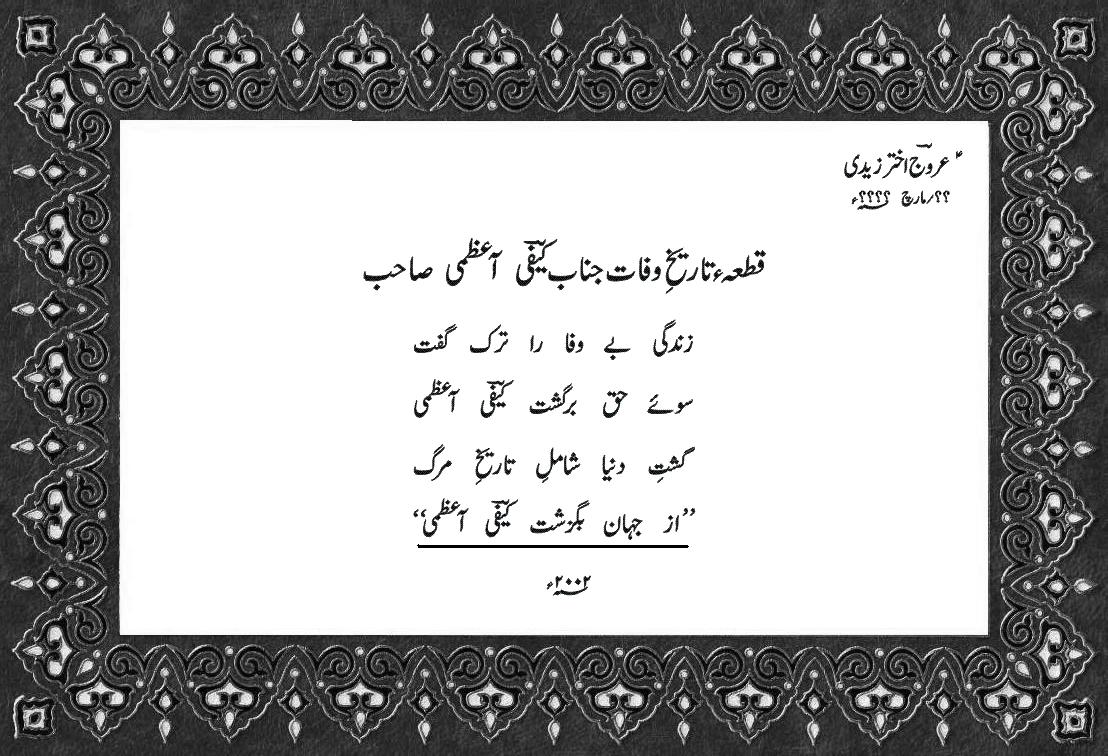 عروج اختر زیدی
؟؟/مارچ ؟؟؟؟ء
قطعہء تاریخِ وفات جناب کیفی آعظمی صاحب
زندگی بے وفا را ترک گفت
سوئے حق برگشت کیفی آعظمی
گشتِ دنیا شاملِ تاریخِ مرگ
”از جہان بگزشت کیفی آعظمی“
۲۰۰۲ء